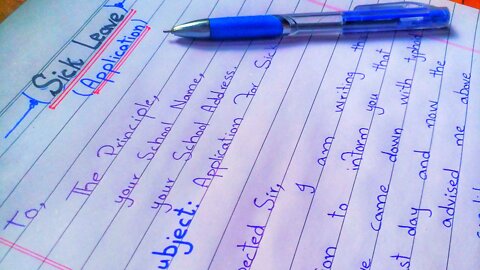 Sick Leave
(Application)
To,
The Principle,
your School Name,
your School Address.
ubject: Application For Sick
pected Sir,
I am writing
ion to inform you that
e came down with
st day and now the
advised me above